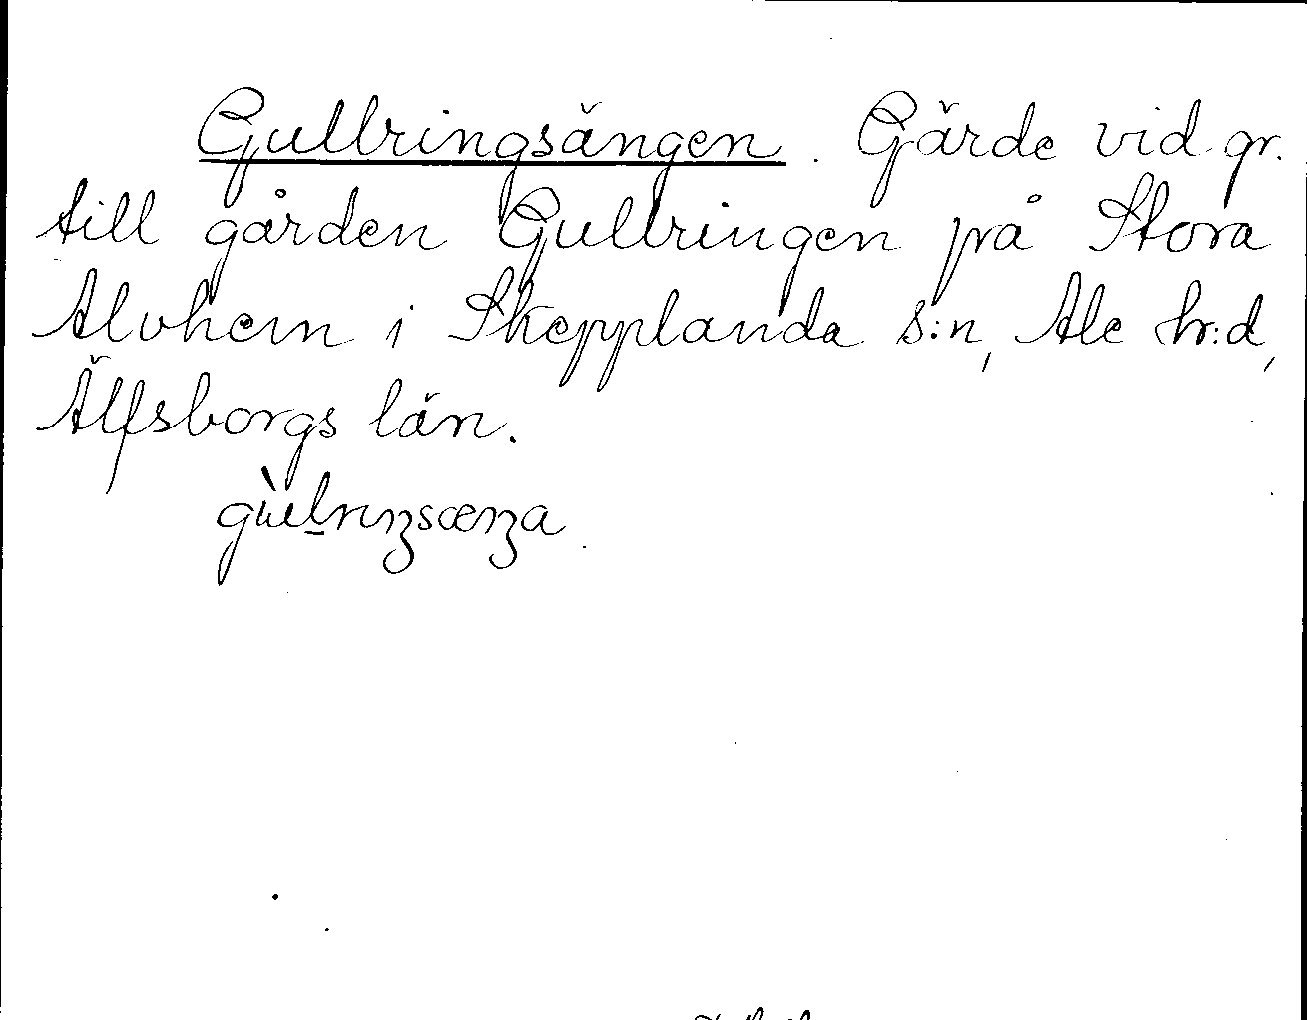 Gullringsängen. Gärde vid gr.
till gården Gullringen på Stora
Alvhem i Skepplanda s:n, Ale hr:d,
Älfsborgs län.
gùlrɩŋsæŋa.